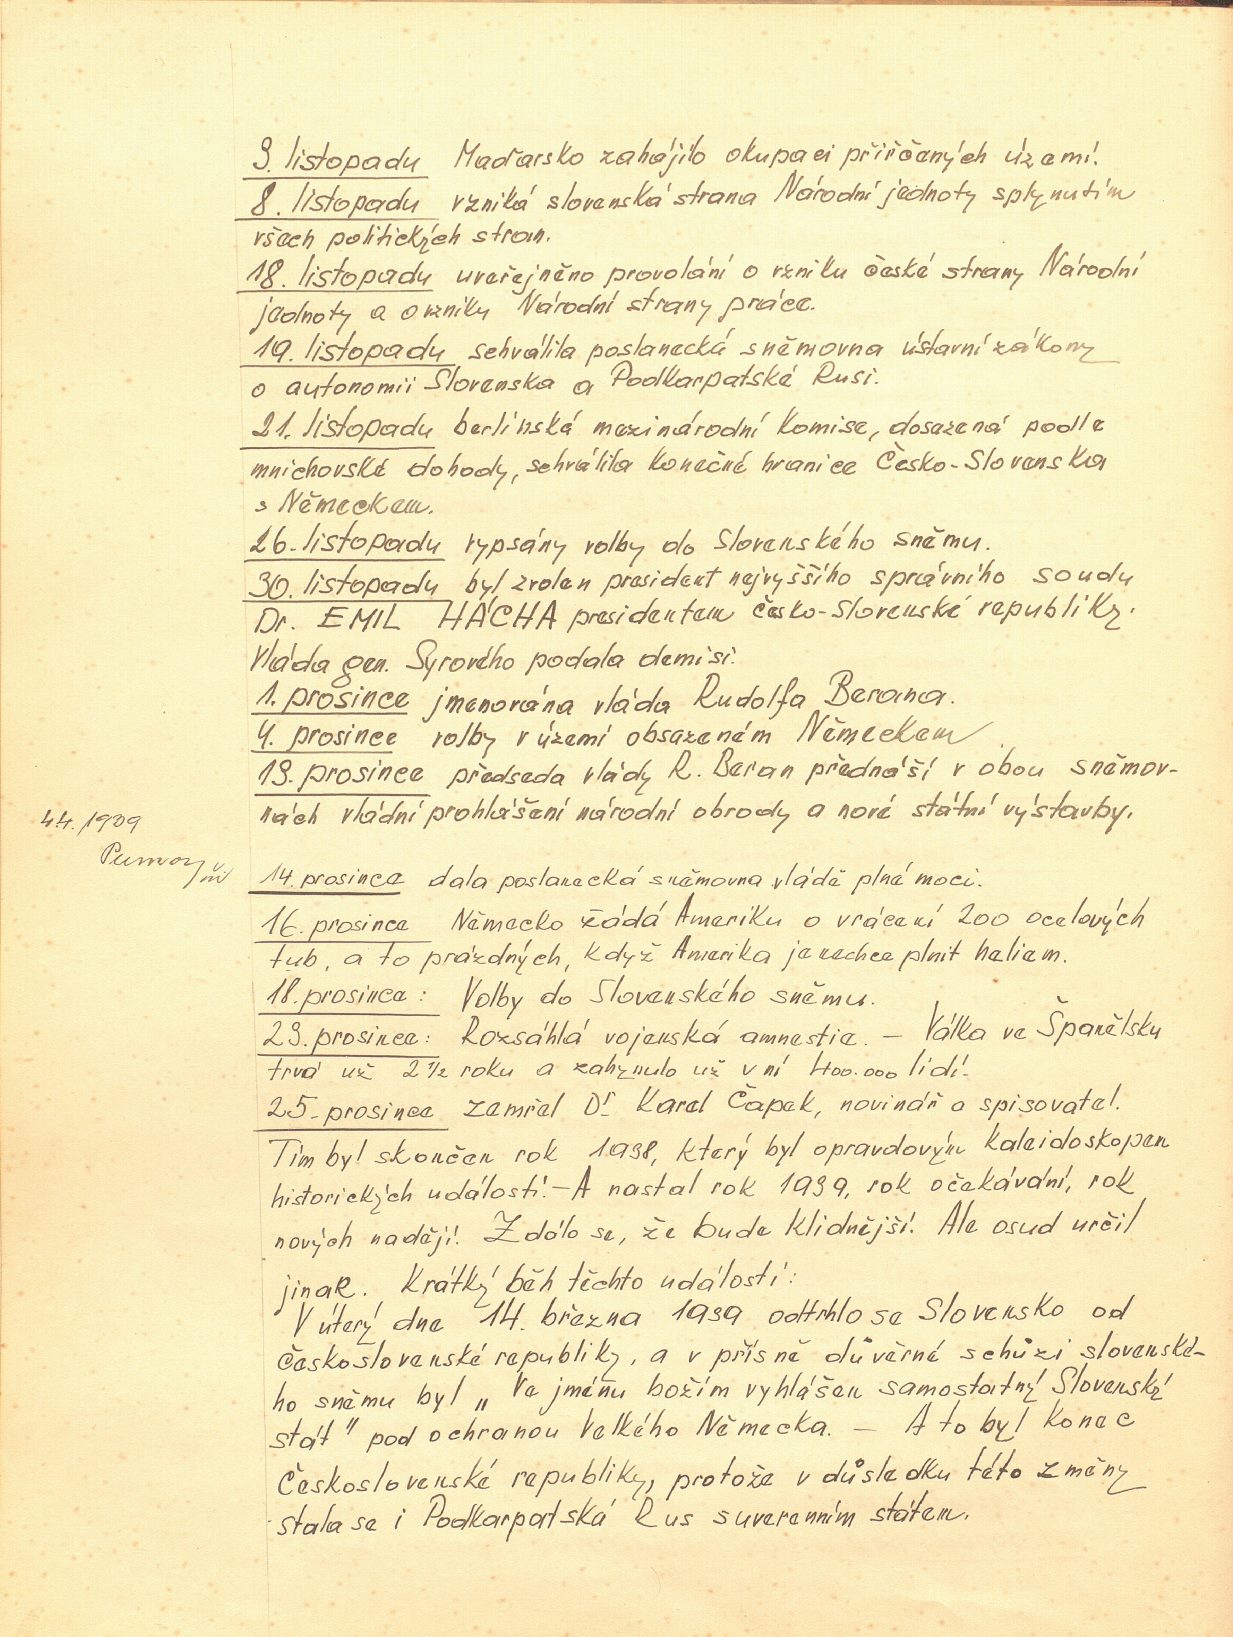 3. listopadu Maďarsko zahájilo okupaci přiřčených území.
8. listopadu vzniká slovenská strana Národní jednoty splynutím
všech politických stran.
18. listopadu uveřejněno provolání o vzniku české strany Národní
jednoty a o vzniku Národní strany práce.
19. listopadu schválila poslanecká sněmovna ústavní zákony
o autonomii Slovenska a Podkarpatské Rusi.
21. listopadu berlínská mezinárodní komise, dosazená podle
mnichovské dohody, schválila konečné hranice Česko-Slovenska
s Německem.
26. listopadu vypsány volby do Slovenského sněmu.
30. listopadu byl zvolen president nejvyššího správního soudu
Dr. EMIL HÁCHA presidentem česko-slovenské republiky.
Vláda gen. Syrového podala demisi.
1. prosince jmenována vláda Rudolfa Berana.
4. prosince volby v území obsazeném Německem
13. prosince předseda vlády R. Beran přednáší v obou sněmov-
nách vládní prohlášení národní obrody a nové státní výstavby.
4.4. 1939
14. prosince dala poslanecká sněmovna vládě plné moci.
16. prosince Německo žádá Ameriku o vrácení 200 ocelových
tub, a to prázdných, když Amerika je nechce plnit heliem.
18. prosince: Volby do Slovenského sněmu.
23. prosince: Rozsáhlá vojenská amnestie. – Válka ve Španělsku
trvá už 2 1/2 roku a zahynulo už v ní 400.000 lidí.
25. prosince zemřel Dr Karel Čapek, novinář a spisovatel.
Tím byl skončen rok 1938, který byl opravdovým kaleidoskopem
historických událostí. – A nastal rok 1939, rok očekávání, rok
nových nadějí. Zdálo se, že bude klidnější. Ale osud určil
jinak. Krátký běh těchto událostí:
V úterý dne 14. března 1939 odtrhlo se Slovensko od
československé republiky, a v přísně důvěrné schůzi slovenské-
ho sněmu byl „ Ve jménu božím vyhlášen samostatný Slovenský
stát " pod ochranou Velkého Německa. – A to byl konec
Československé republiky, protože v důsledku této změny
stala se i Podkarpatská Rus suverenním státem.